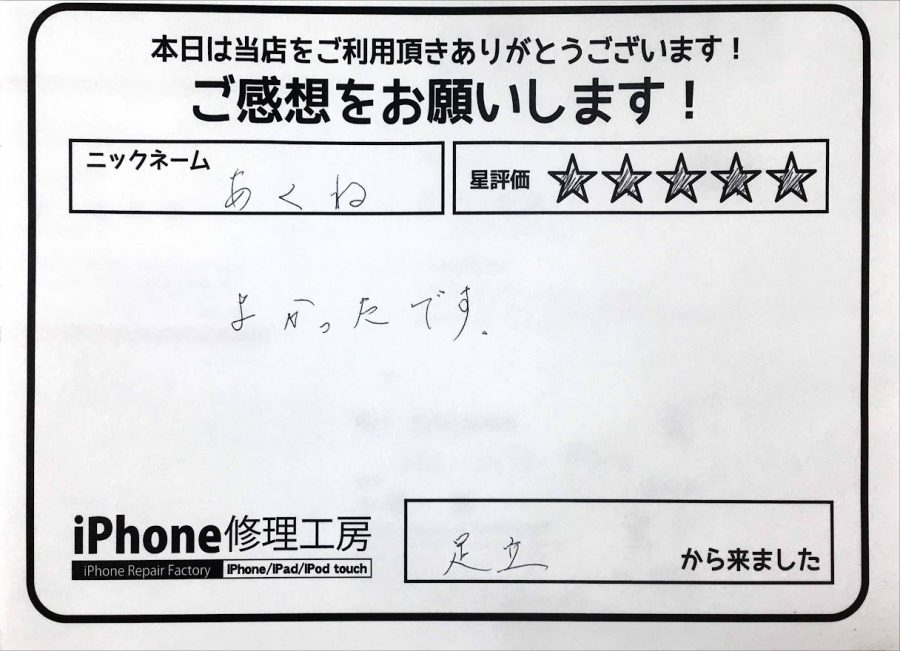 本日は当店をご利用頂きありがとうございます！
ご感想をお願いします！
ニックネーム あくね
星評価 ★★★★★
よかったです.
iPhone修理工房
iPhone Repair Factory iPhone/iPad/iPod touch
足立 から来ました